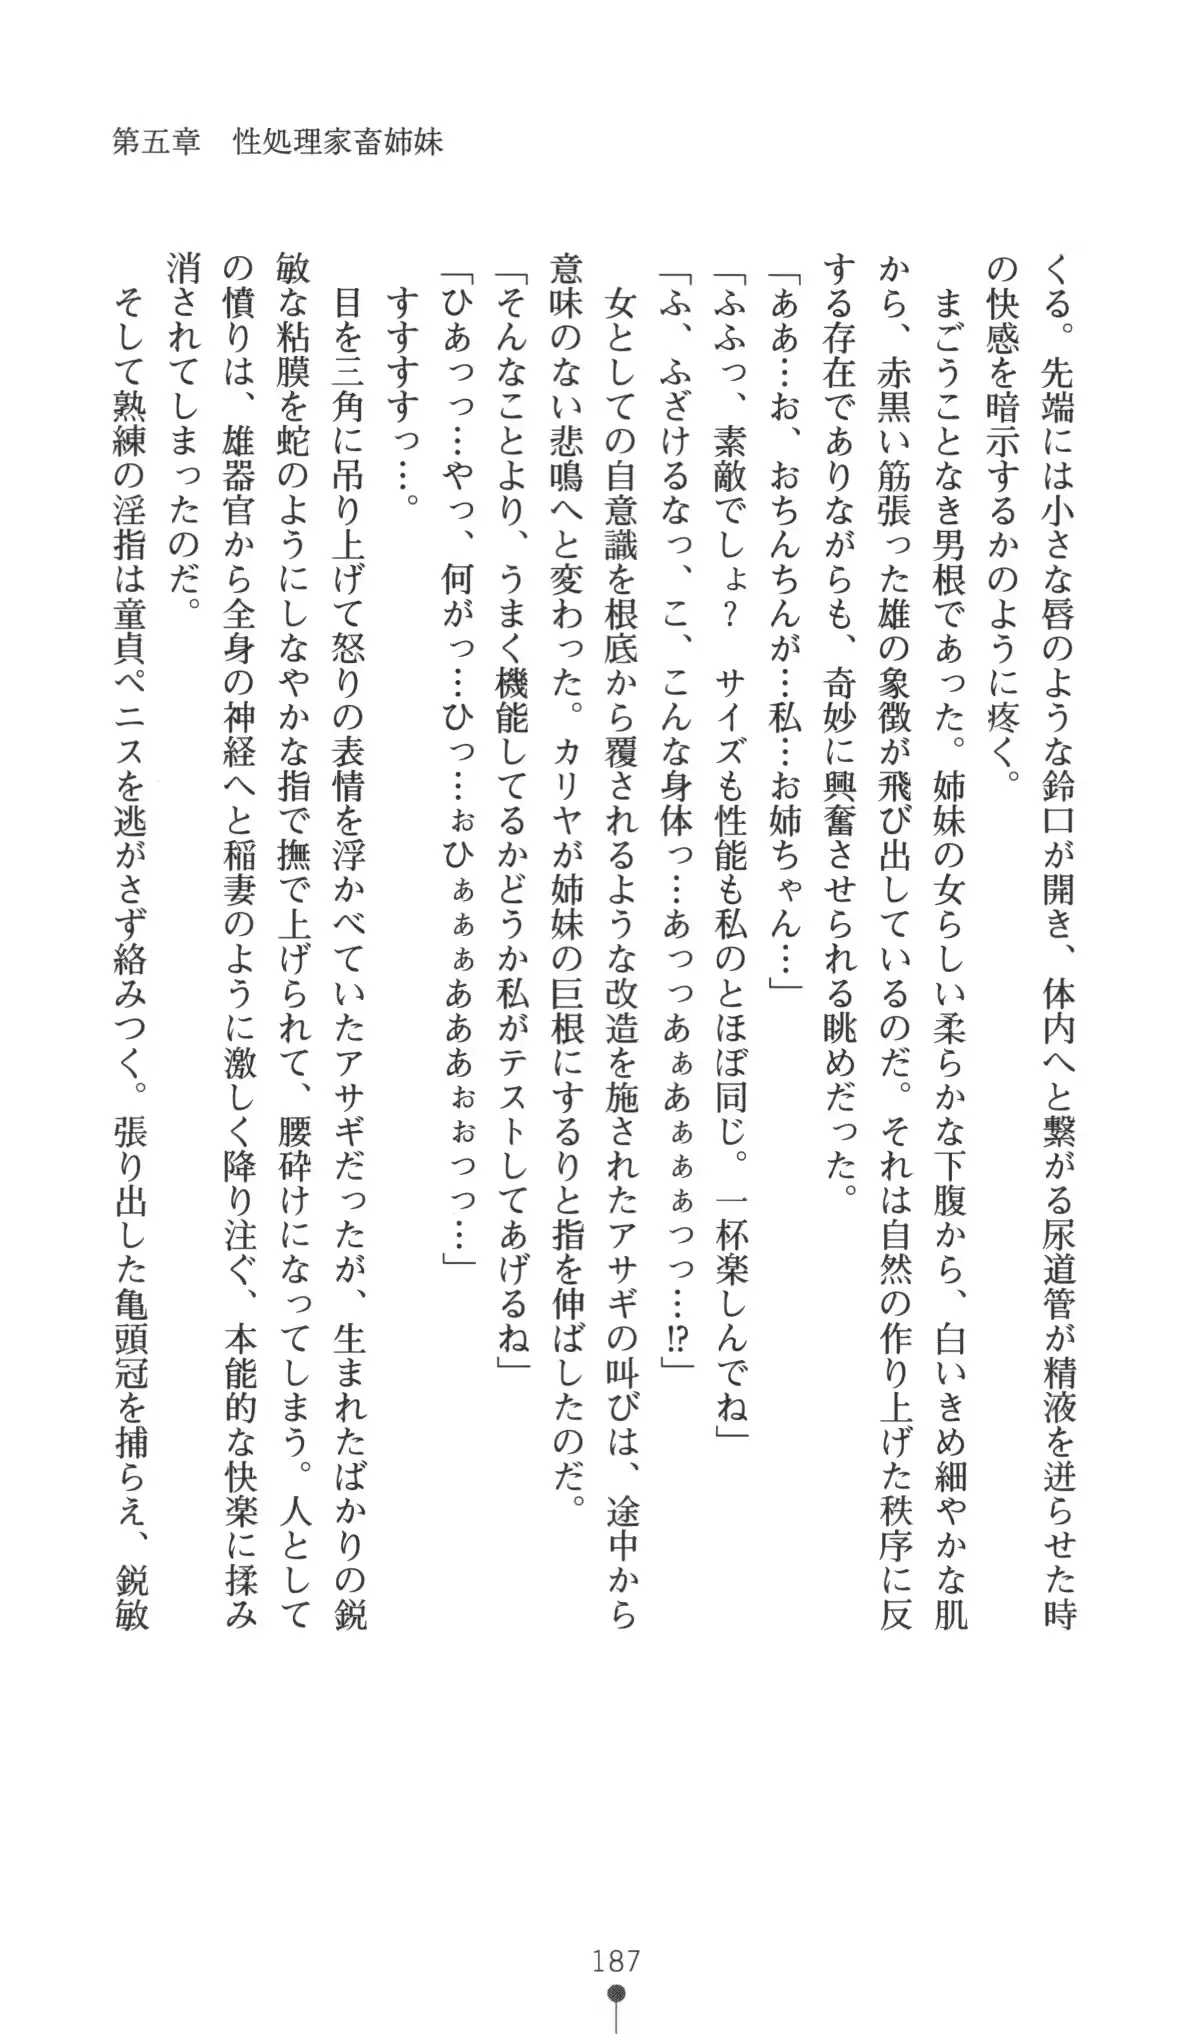 第五章　性処理家畜姉妹
くる。先端には小さな唇のような鈴口が開き、体内へと繋がる尿道管が精液を迸らせた時
の快感を暗示するかのように疼く。
　まごうことなき男根であった。姉妹の女らしい柔らかな下腹から、白いきめ細やかな肌
から、赤黒い筋張った雄の象徴が飛び出しているのだ。それは自然の作り上げた秩序に反
する存在でありながらも、奇妙に興奮させられる眺めだった。
「ああ…お、おちんちんが…私…お姉ちゃん…」
「ふふっ、素敵でしょ？　サイズも性能も私のとほぼ同じ。一杯楽しんでね」
「ふ、ふざけるなっ、こ、こんな身体っ…あっっあぁあぁぁぁっっ…!?」
　女としての自意識を根底から覆されるような改造を施されたアサギの叫びは、途中から
意味のない悲鳴へと変わった。カリヤが姉妹の巨根にするりと指を伸ばしたのだ。
「そんなことより、うまく機能してるかどうか私がテストしてあげるね」
「ひあっっ…やっ、何がっ…ひっ…ぉひぁぁぁあああぉぉっっ…」
　すすすすっ…。
　目を三角に吊り上げて怒りの表情を浮かべていたアサギだったが、生まれたばかりの鋭
敏な粘膜を蛇のようにしなやかな指で撫で上げられて、腰砕けになってしまう。人として
の憤りは、雄器官から全身の神経へと稲妻のように激しく降り注ぐ、本能的な快楽に揉み
消されてしまったのだ。
　そして熟練の淫指は童貞ペニスを逃がさず絡みつく。張り出した亀頭冠を捕らえ、鋭敏
187